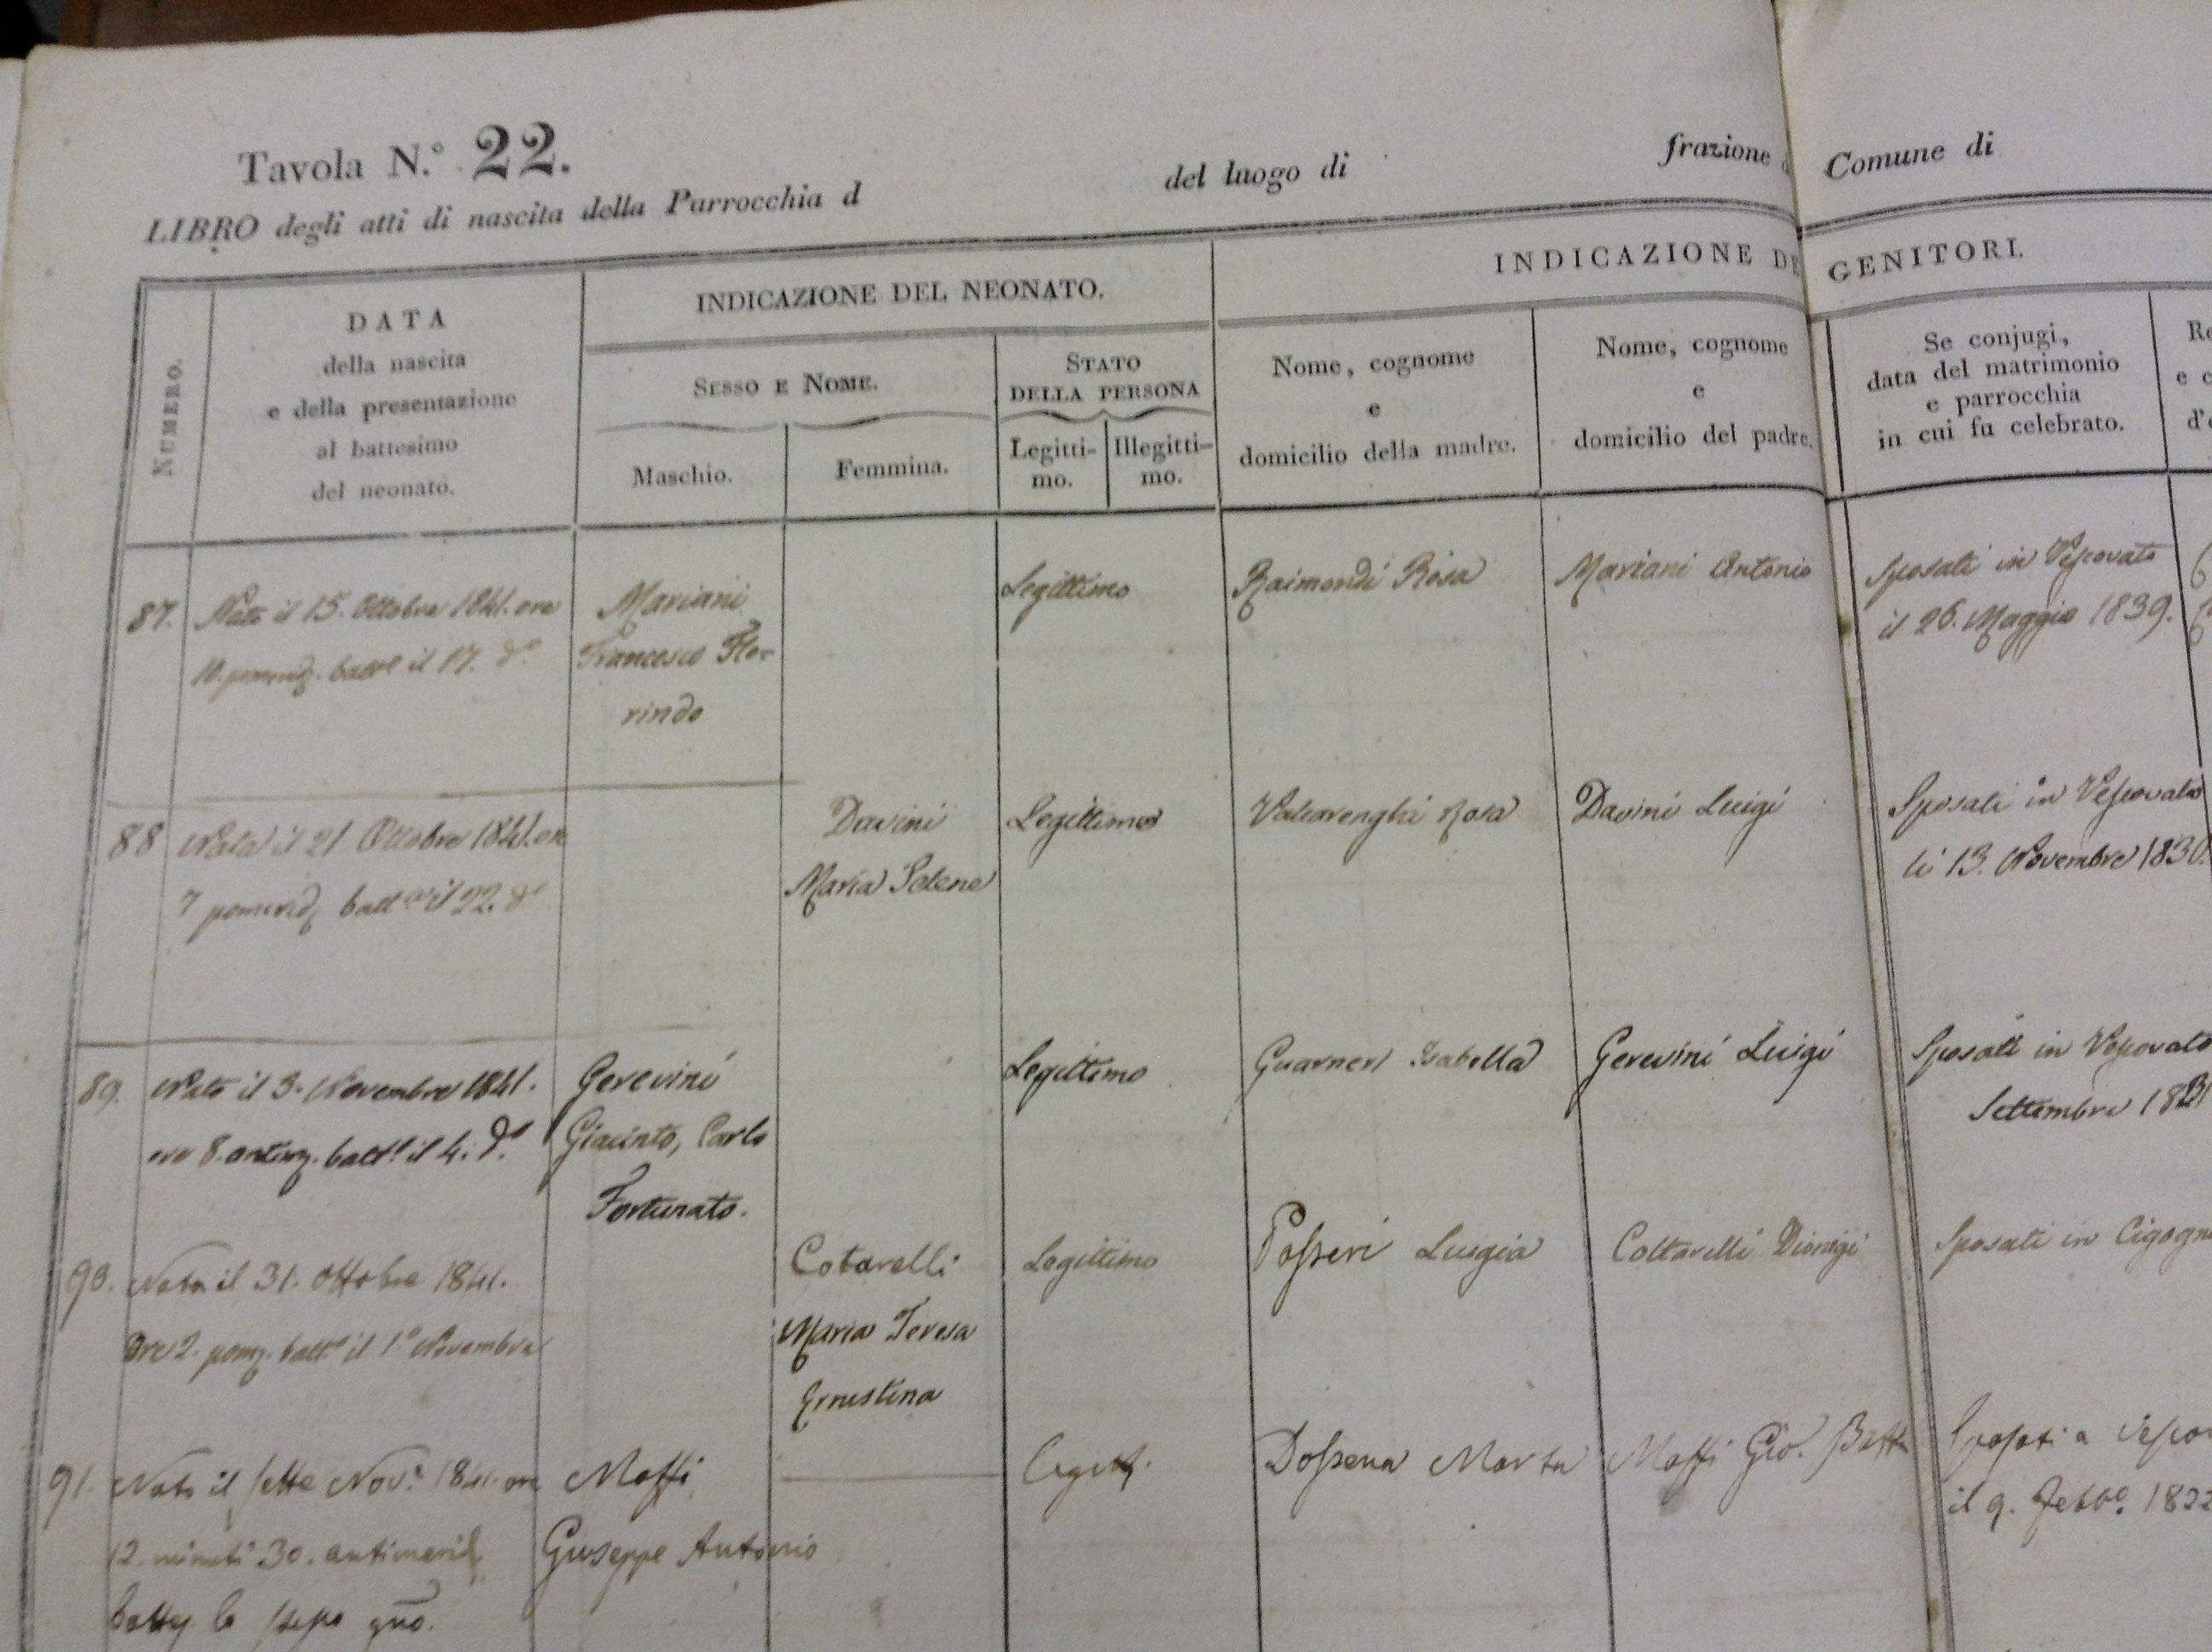 Tavola N.° 22.
LIBRO degli atti di nascita della Parrocchia d del luogo di frazione Comune di
INDICAZIONE DEL NEONATO.
INDICAZIONE DE GENITORI.
NUMERO.
DATA
della nascita
e della presentazione
al battesimo
del neonato.
SESSO E NOME.
Maschio.
Femmina.
STATO
DELLA PERSONA
Legitti-
mo.
Illegitti-
mo.
Nome, cognome
e
domicilio della madre.
Nome, cognome
e
domicilio del padre.
Se conjugi,
data del matrimonio
e parrocchia
in cui fu celebrato.
87.
Nato il 15. Ottobre 1841. ore
10. pomerid. batt° il 17. d°
Mariani
Francesco Flo-
rindo
Legittimo
Raimondi Rosa
Mariani Antonio
Sposati in Vescovato
il 26. Maggio 1839.
88
Nata il 21 Ottobre 1841. ore
7 pomerid. batt. il 22. d°
Davini
Maria Selene
Legittimo
Valcarenghi Rosa
Davini Luigi
Sposati in Vescovato
li 13. Novembre 1830.
89.
Nato il 3. Novembre 1841.
ore 8. antim. batt° il 4. d°
Gerevini
Giacinto, Carlo
Fortunato.
Legittimo
Guarneri Isabella
Gerevini Luigi
Sposati in Vescovato
Settembre
90.
Nata il 31. Ottobre 1841.
Ore 2. pom. batt° il 1° Novembre
Cotarelli
Maria Teresa
Ernestina
Legittimo
Posseri Luigia
Coltarelli Dionigi
Sposati in Cigogn
91.
Nato il sette Nov.e 1841. ore
12. minuti 30. antimerid.
batt. lo stesso gno.
Maffi
Giuseppe Antonio
Legitt.
Dossena Marta
Maffi Gio. Batta
Sposati a Vescov
il 9. Febb° 1822